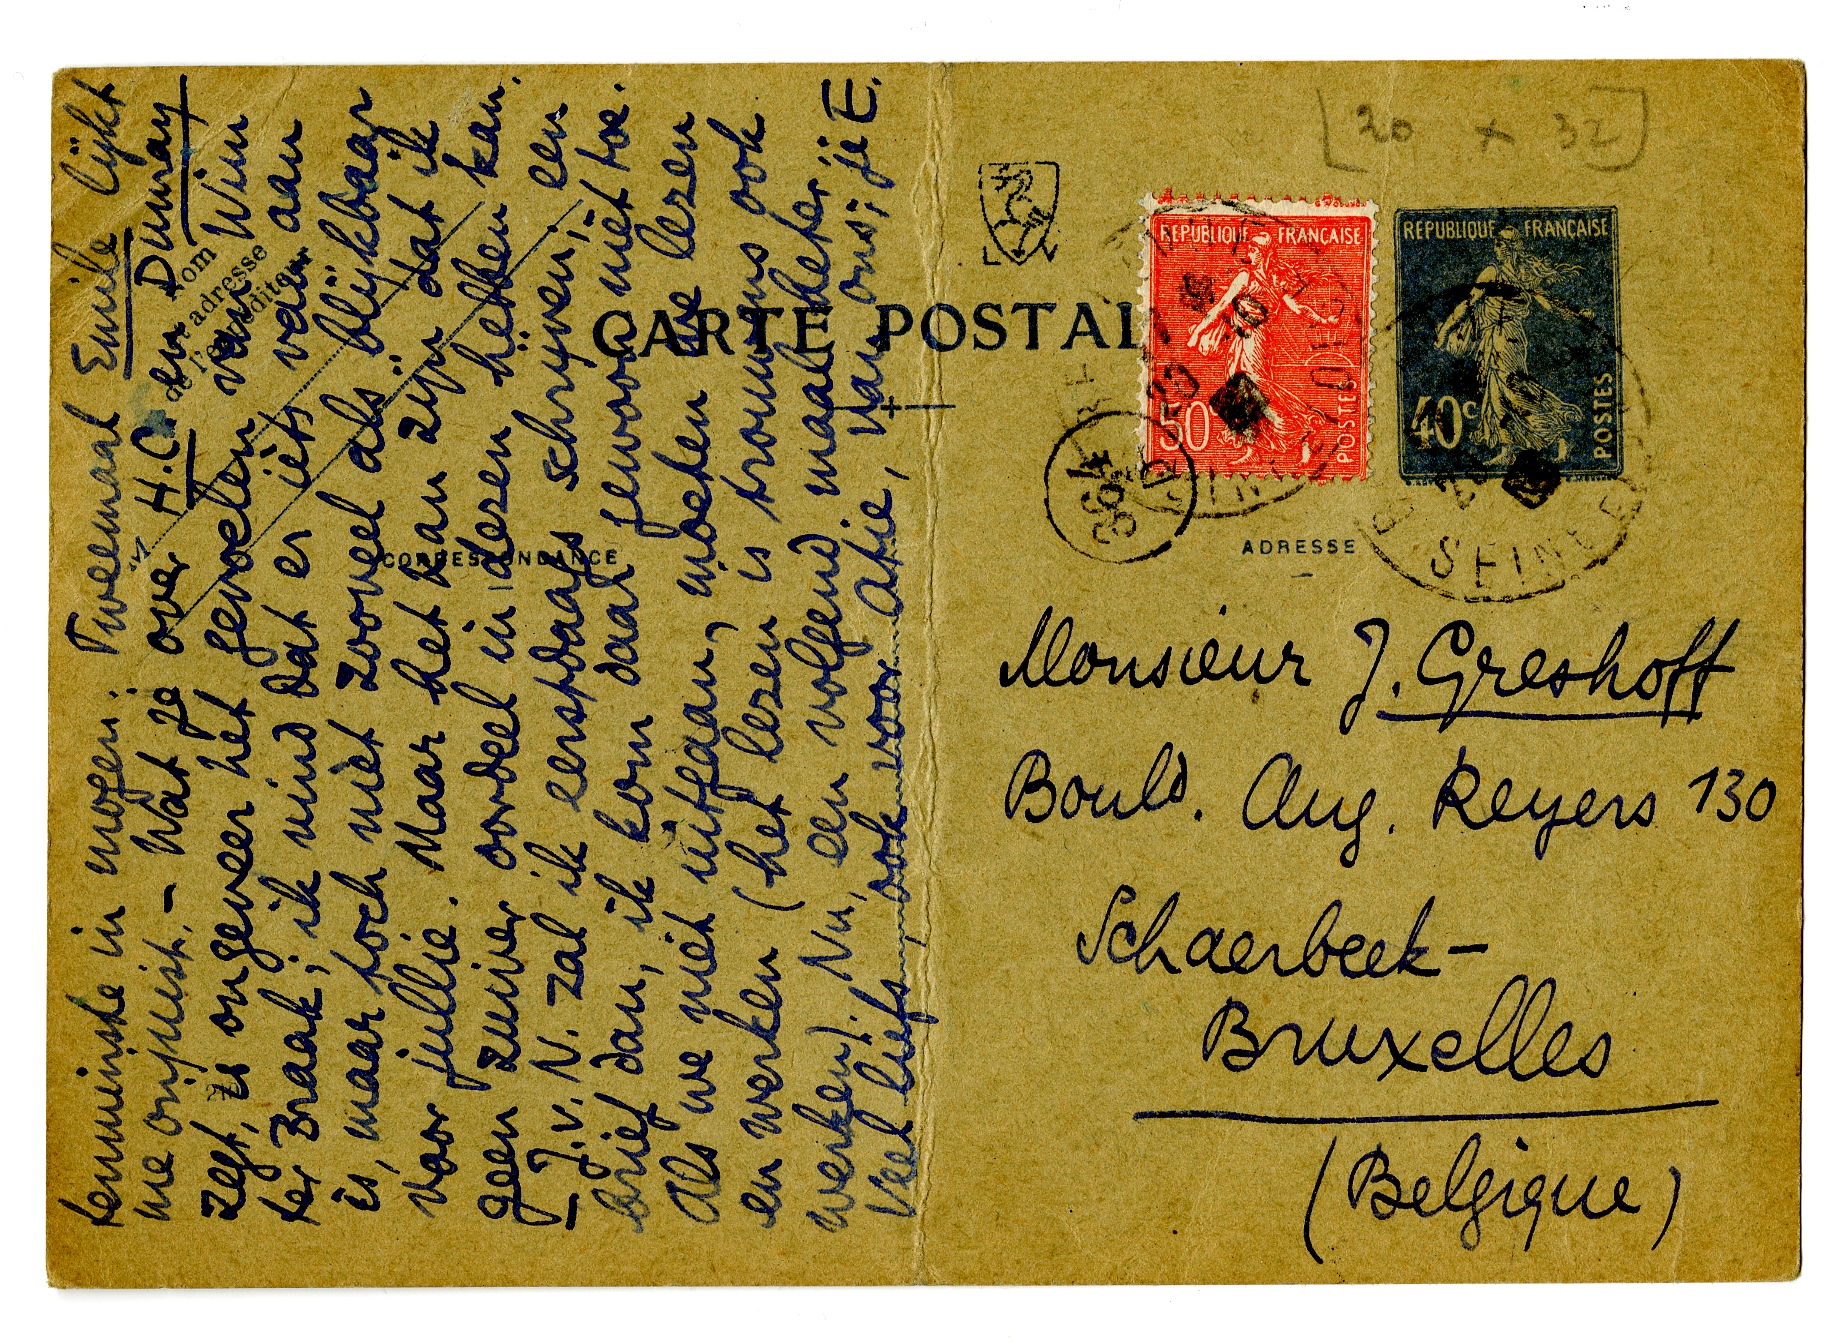 tenminste in mogen: Tweemaal Emile lijkt
me onjuist. – Wat je over H.C. en Dumay
zegt, is ongeveer het gevoelen van Wim
ter Braak; ik vind dat er iets van aan
is, maar toch niet zooveel als blijkbaar
voor jullie. Maar het kan zijn dat ik
geen zuiver oordeel in dezen hebben kan.
– J.v.N. zal ik eerstdaags schrijven; een
brief dan, ik kom daar gewoon niet toe.
Als we niet uitgaan, moeten we lezen
en werken (het lezen is trouwens ook
werken). Nu, een volgend maal beter;
veel liefs, ook voor Atie, van ons; je E.
Nom
et adresse
de l'expéditeur
CARTE POSTALE
CORRESPONDANCE
[20 x 32]
REPUBLIQUE FRANÇAISE
50
POSTES
REPUBLIQUE FRANÇAISE
40c
POSTES
SEINE
364
ADRESSE
Monsieur J. Greshoff
Bould. Aug. Reyers 130
Schaerbeek –
Bruxelles
(Belgique)